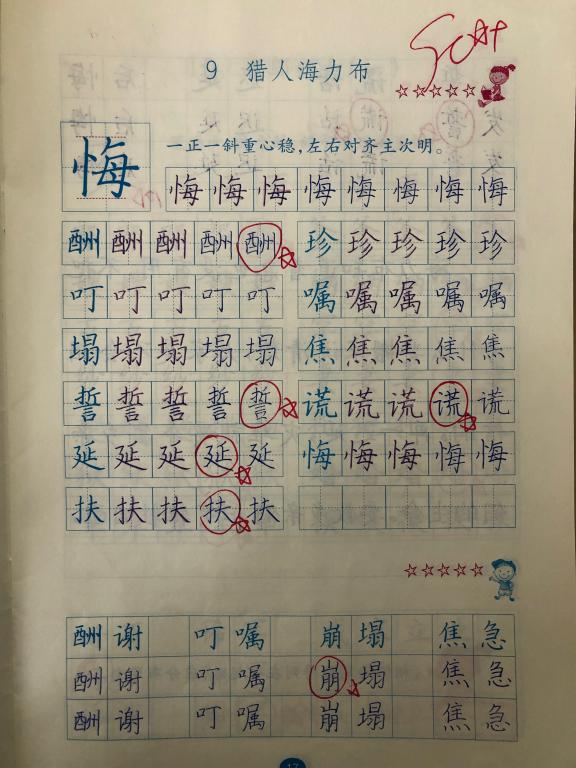 9 猎人海力布
一正一斜重心稳,左右对齐主次明。
悔 悔 悔 悔 悔 悔 悔 悔 悔
酬 酬 酬 酬 酬 珍 珍 珍 珍 珍
叮 叮 叮 叮 叮 嘱 嘱 嘱 嘱 嘱
塌 塌 塌 塌 塌 焦 焦 焦 焦 焦
誓 誓 誓 誓 誓 谎 谎 谎 谎 谎
延 延 延 延 延 悔 悔 悔 悔 悔
扶 扶 扶 扶 扶
酬 谢 叮 嘱 崩 塌 焦 急
酬 谢 叮 嘱 崩 塌 焦 急
酬 谢 叮 嘱 崩 塌 焦 急
17